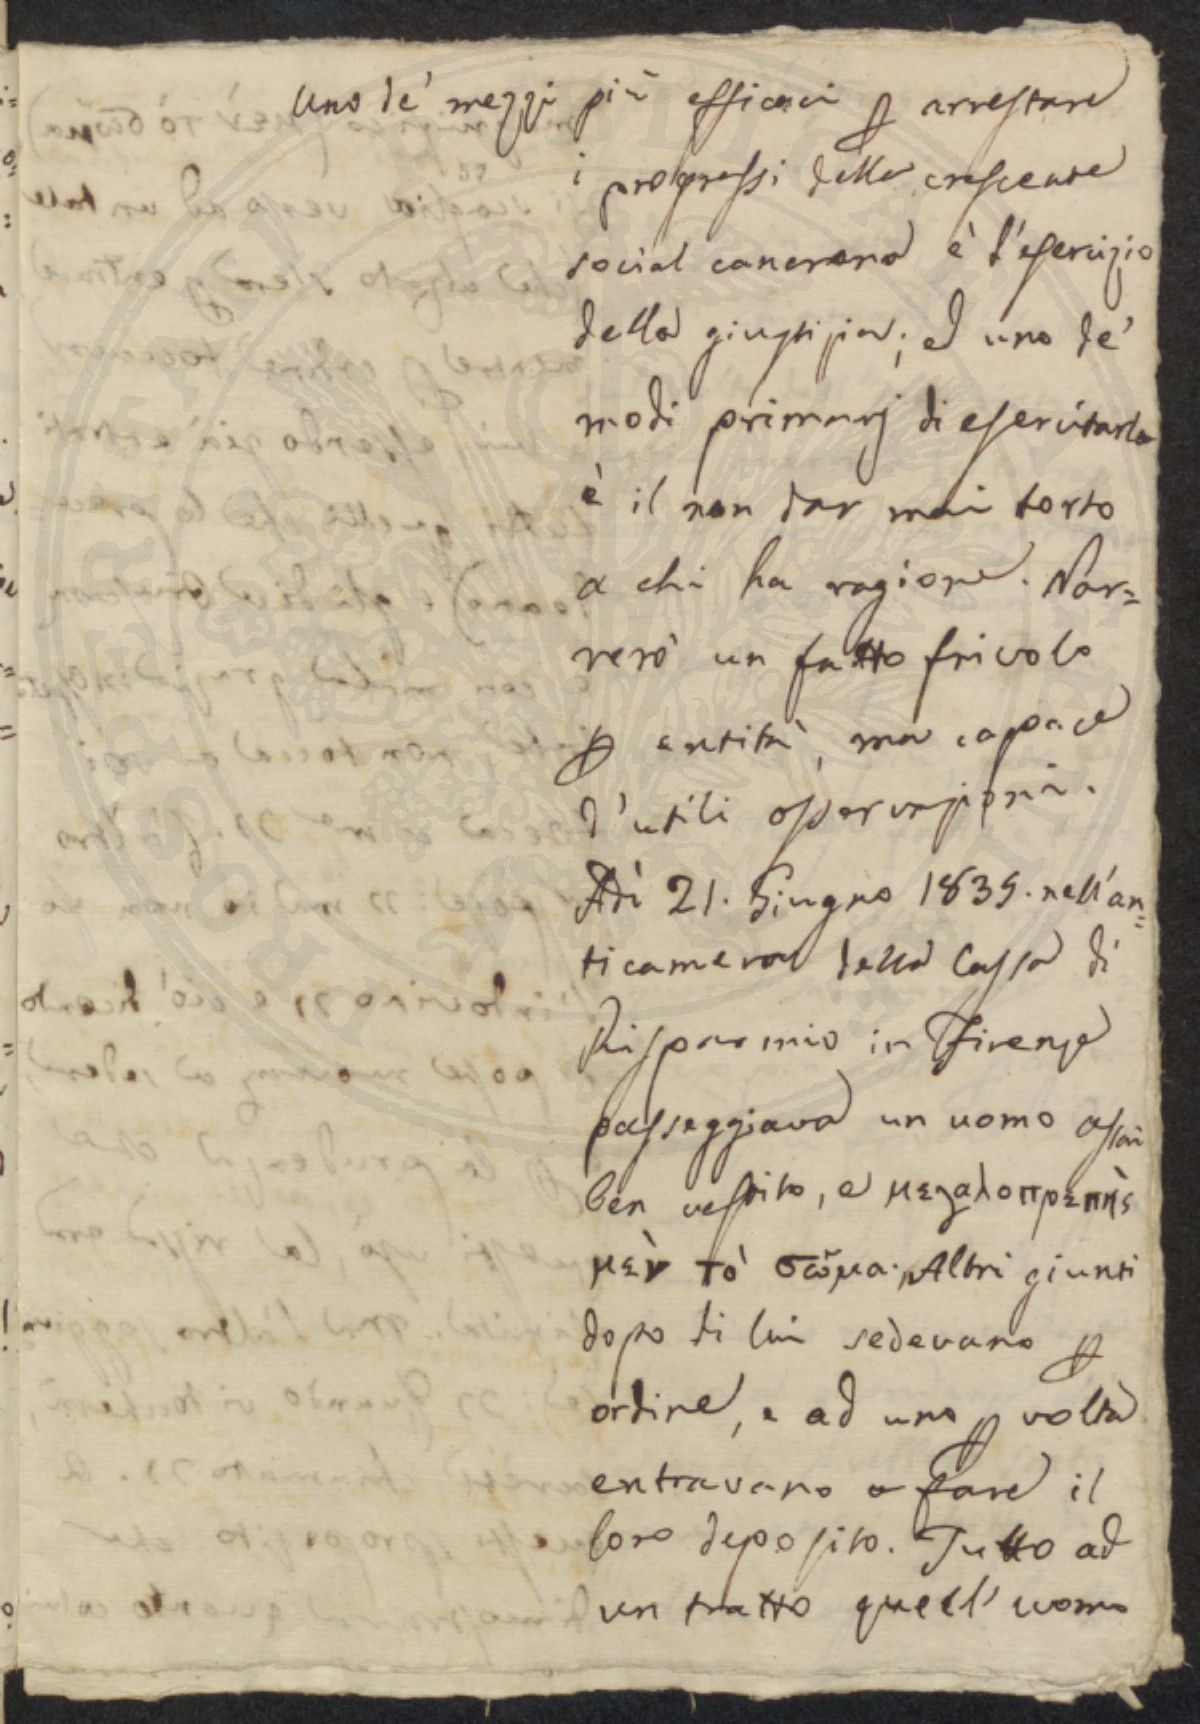 Uno de' mezzi più efficaci ꝑ arrestare
i progressi della crescente
social cancrena è l'esercizio
della giustizia; ed uno de'
modi primarj di esercitarla
è il non dar mai torto
a chi ha ragione. Nar=
rerò un fatto frivolo
ꝑ entità, ma capace
d'utili osservazioni.
Adì 21. Giugno 1835. nell'an=
ticamera della Cassa di
Risparmio in Firenze
passeggiava un uomo assai
ben vestito, e μεγαλοπρεπὴς
μὲν τὸ σῶμα. Altri giunti
dopo di lui sedevano ꝑ
ordine, e ad uno ꝑ volta
entravano a fare il
loro deposito. Tutto ad
un tratto quell' uomo